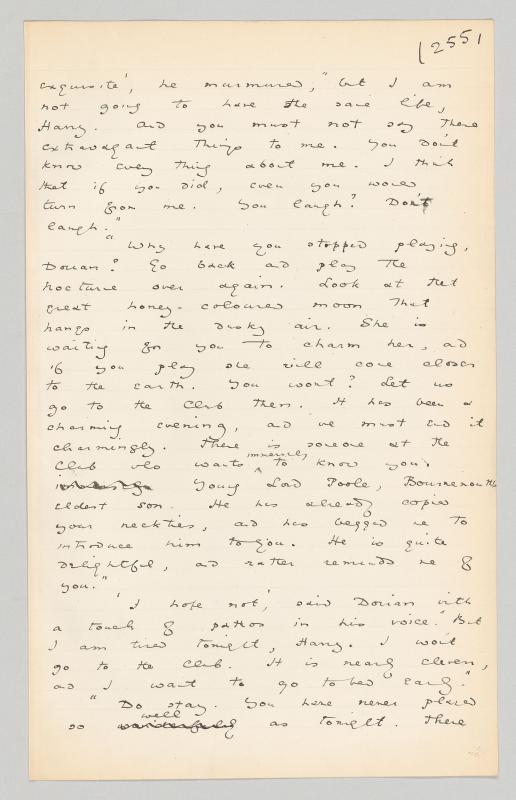 255
exquisite', he murmured, "but I am
not going to have the same life,
Harry. And you must not say these
extravagant things to me. You don't
know every thing about me. I think
that if you did, even you would
turn from me. You laugh? Don't
laugh."
"Why have you stopped playing,
Dorian? Go back and play the
nocturne over again. Look at that
great honey-coloured moon that
hangs in the dusky air. She is
waiting for you to charm her, and
if you play she will come closer
to the earth. You wont? Let us
go to the Club then. It has been a
charming evening, and we must end it
charmingly. There is someone at the
immensely
Club who wants to know you.
Young Lord Poole, Bournemouth's
eldest son. He has already copied
your neckties, and has begged me to
introduce him to you. He is quite
delightful, and rather reminds me of
you."
'I hope not', said Dorian with
a touch of pathos in his voice. "But
I am tired tonight, Harry. I won't
go to the Club. It is nearly eleven,
and I want to go to bed early."
"Do stay. You have never played
well
so wonderfully as tonight. There